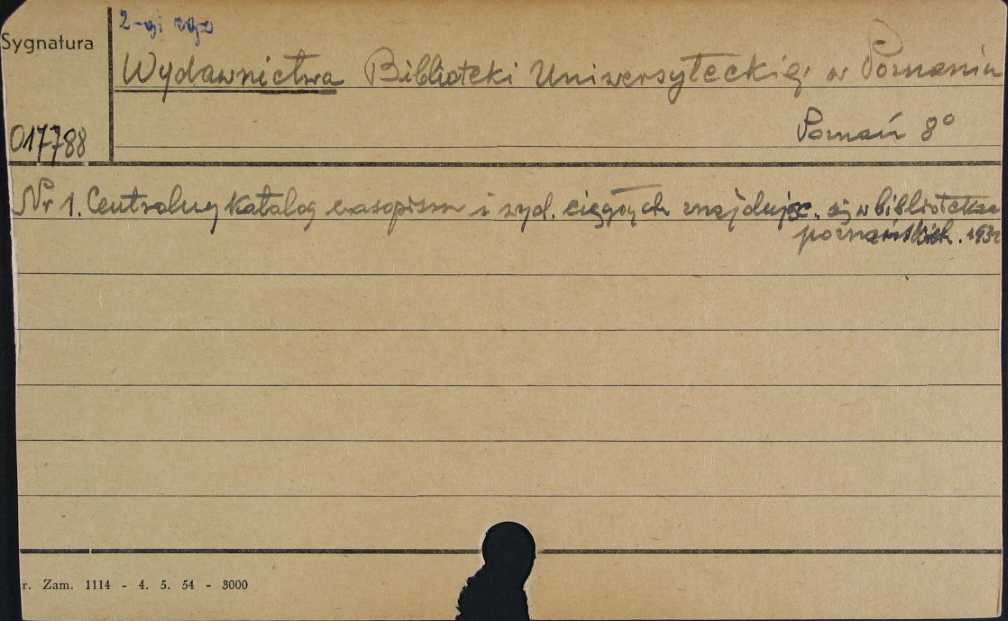 2-gi egz
Sygnatura
Wydawnictwa Biblioteki Uniwersyteckiej w Poznaniu
Poznań 8°
017788
Nr 1. Centralny katalog czasopism i wyd. ciągłych znajdując. się w bibliotekach
poznańskich. 193
r. Zam. 1114 - 4. 5. 54 - 3000